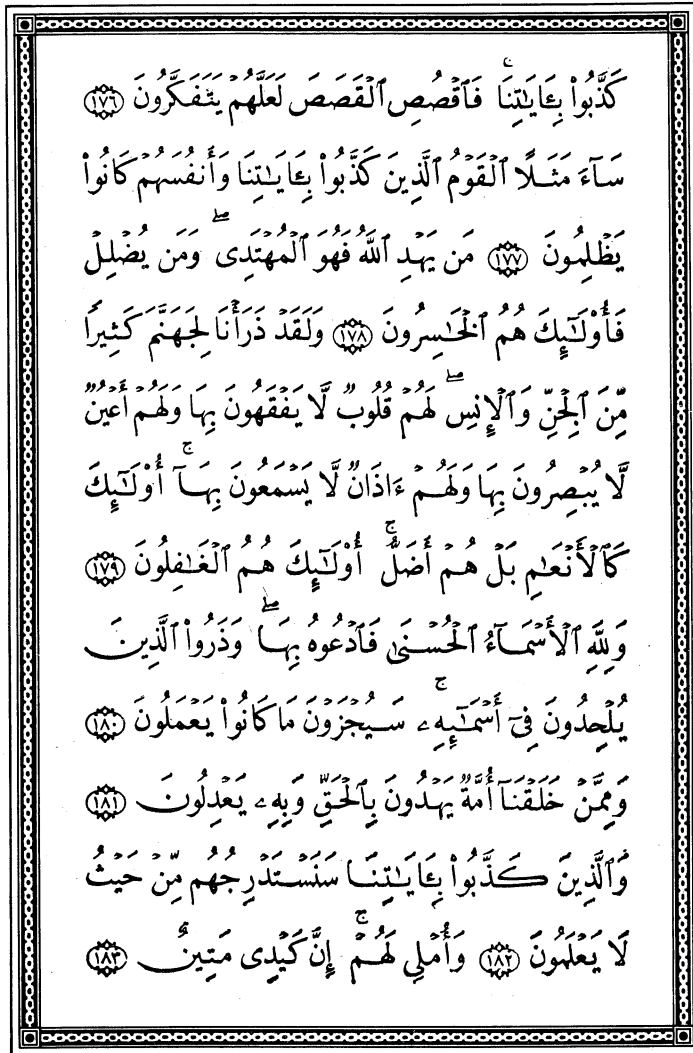 كَذَّبُوا۟ بِـَٔايَـٰتِنَا ۚ فَٱقْصُصِ ٱلْقَصَصَ لَعَلَّهُمْ يَتَفَكَّرُونَ ١٧٦
سَآءَ مَثَلًا ٱلْقَوْمُ ٱلَّذِينَ كَذَّبُوا۟ بِـَٔايَـٰتِنَا وَأَنفُسَهُمْ كَانُوا۟
يَظْلِمُونَ ١٧٧ مَن يَهْدِ ٱللَّهُ فَهُوَ ٱلْمُهْتَدِى ۖ وَمَن يُضْلِلْ
فَأُو۟لَـٰٓئِكَ هُمُ ٱلْخَـٰسِرُونَ ١٧٨ وَلَقَدْ ذَرَأْنَا لِجَهَنَّمَ كَثِيرًا
مِّنَ ٱلْجِنِّ وَٱلْإِنسِ ۖ لَهُمْ قُلُوبٌ لَّا يَفْقَهُونَ بِهَا وَلَهُمْ أَعْيُنٌ
لَّا يُبْصِرُونَ بِهَا وَلَهُمْ ءَاذَانٌ لَّا يَسْمَعُونَ بِهَآ ۚ أُو۟لَـٰٓئِكَ
كَٱلْأَنْعَـٰمِ بَلْ هُمْ أَضَلُّ ۚ أُو۟لَـٰٓئِكَ هُمُ ٱلْغَـٰفِلُونَ ١٧٩
وَلِلَّهِ ٱلْأَسْمَآءُ ٱلْحُسْنَىٰ فَٱدْعُوهُ بِهَا ۖ وَذَرُوا۟ ٱلَّذِينَ
يُلْحِدُونَ فِىٓ أَسْمَـٰٓئِهِۦ ۚ سَيُجْزَوْنَ مَا كَانُوا۟ يَعْمَلُونَ ١٨٠
وَمِمَّنْ خَلَقْنَآ أُمَّةٌ يَهْدُونَ بِٱلْحَقِّ وَبِهِۦ يَعْدِلُونَ ١٨١
وَٱلَّذِينَ كَذَّبُوا۟ بِـَٔايَـٰتِنَا سَنَسْتَدْرِجُهُم مِّنْ حَيْثُ
لَا يَعْلَمُونَ ١٨٢ وَأُمْلِى لَهُمْ ۚ إِنَّ كَيْدِى مَتِينٌ ١٨٣